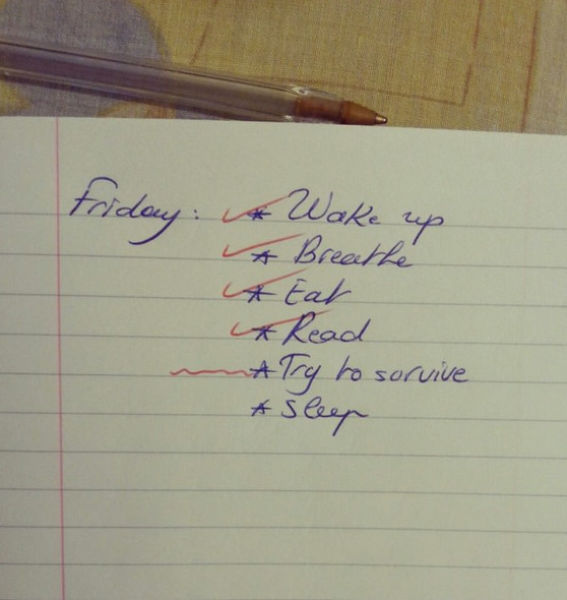 Friday: * Wake up
* Breathe
* Eat
* Read
* Try to sorvive
* Sleep